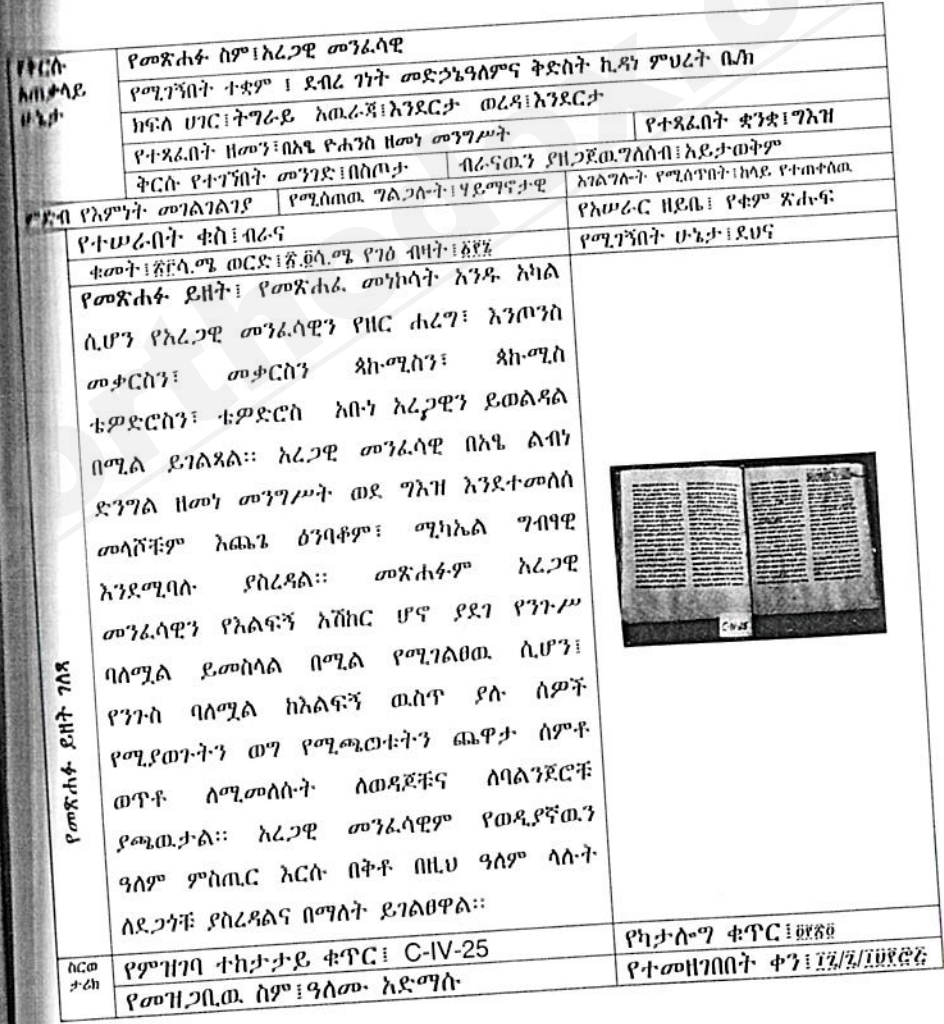 የቅርሱ አጠቃላይ ሁኔታ
የመጽሐፉ ስም፤አረጋዊ መንፈሳዊ
የሚገኝበት ተቋም ፤ ደብረ ገነት መድኃኔዓለምና ቅድስት ኪዳነ ምህረት ቤ/ክ
ክፍለ ሀገር፤ትግራይ አዉራጃ፤እንደርታ ወረዳ፤እንደርታ
የተጻፈበት ዘመን፡በአፄ ዮሐንስ ዘመነ መንግሥት
የተጻፈበት ቋንቋ፤ግእዝ
ቅርሱ የተገኘበት መንገድ፤በስጦታ
ብራናዉን ያዘጋጀዉግለሰብ፤አይታወቅም
ምድብ የእምነት መገልገልገያ
የሚሰጠዉ ግልጋሎት፤ሃይማኖታዊ
አገልግሎት የሚሰጥበት፤ከላይ የተጠቀሰዉ
የተሠራበት ቁስ፤ብራና
የአሠራር ዘይቤ፤ የቁም ጽሑፍ
የሚገኝበት ሁኔታ፤ደህና
የመጽሐፉ ይዘት ገለጻ
የመጽሐፉ ይዘት፤ የመጽሐፈ መነኮሳት አንዱ አካል
ሲሆን የአረጋዊ መንፈሳዊን የዘር ሐረግ፣ እንጦንስ
መቃርስን፣ መቃርስን ጳኩሚስን፣ ጳኩሚስ
ቴዎድሮስን፣ ቴዎድሮስ አቡነ አረጋዊን ይወልዳል
በሚል ይገልጻል። አረጋዊ መንፈሳዊ በአፄ ልብነ
ድንግል ዘመነ መንግሥት ወደ ግእዝ እንደተመለሰ
መላሾቹም እጨጌ ዕንባቆም፣ ሚካኤል ግብፃዊ
እንደሚባሉ ያስረዳል። መጽሐፉም አረጋዊ
መንፈሳዊን የእልፍኝ አሽከር ሆኖ ያደገ የንጉሥ
ባለሟል ይመስላል በሚል የሚገልፀዉ ሲሆን፤
የንጉስ ባለሟል ከእልፍኝ ዉስጥ ያሉ ሰዎች
የሚያወጉትን ወግ የሚጫወቱትን ጨዋታ ሰምቶ
ወጥቶ ለሚመለሱት ለወዳጆቹና ለባልንጀሮቹ
ያጫዉታል። አረጋዊ መንፈሳዊም የወዲያኛዉን
ዓለም ምስጢር እርሱ በቅቶ በዚህ ዓለም ላሉት
ለደጋጎቹ ያስረዳልና በማለት ይገልፀዋል።
C-IV-25
ስርወ ታሪክ
የምዝገባ ተከታታይ ቁጥር፤ C-IV-25
የካታሎግ ቁጥር፤
የመዝጋቢዉ ስም፤ዓለሙ አድማሱ
የተመዘገበበት ቀን፤